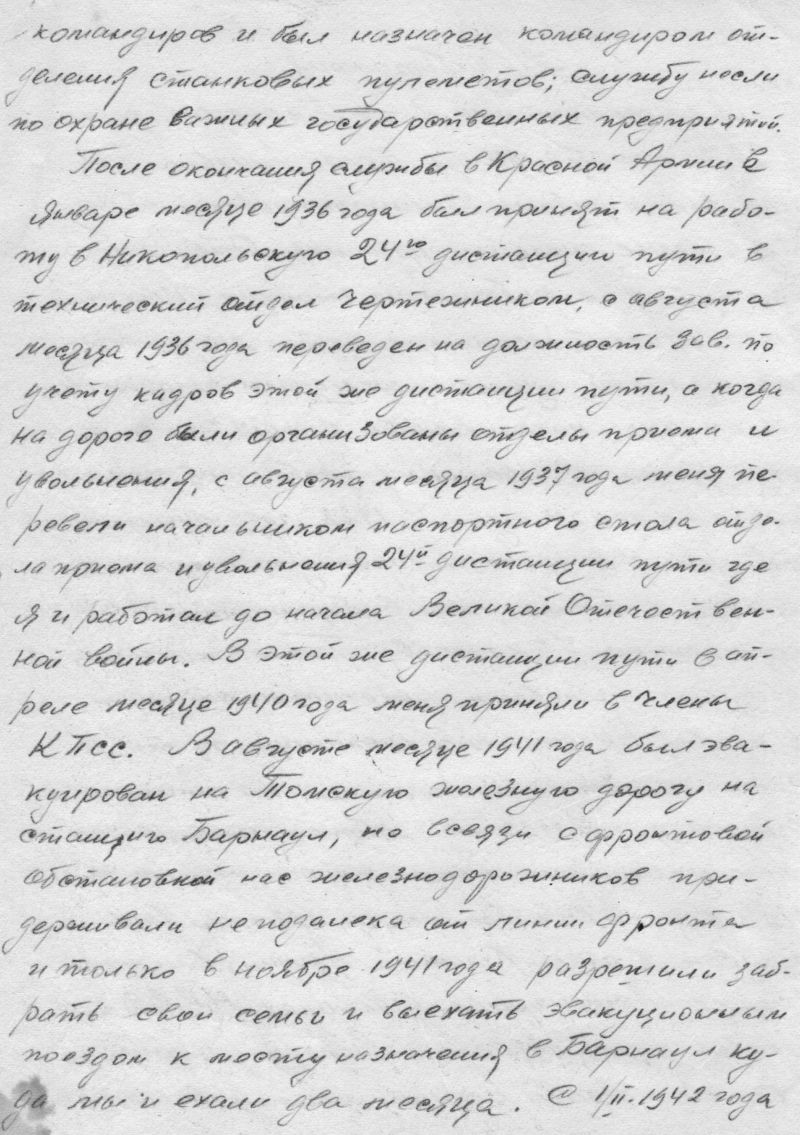 командиров и был назначен командиром от-
деления станковых пулеметов; службу несли
по охране важных государственных предприятий.
После окончания службы в Красной Армии в
январе месяце 1936 года был принят на рабо-
ту в Никопольскую 24ю дистанцию пути в
технический отдел чертежником, с августа
месяца 1936 года переведен на должность зав. по
учету кадров этой же дистанции пути, а когда
на дороге были организованы отделы приема и
увольнения, с августа месяца 1937 года меня пе-
ревели начальником паспортного стола отде-
ла приема и увольнения 24й дистанции пути где
я и работал до начала Великой Отечествен-
ной войны. В этой же дистанции пути в ап-
реле месяце 1940 года меня приняли в члены
КПСС. В августе месяце 1941 года был эва-
куирован на Томскую железную дорогу на
станцию Барнаул, но всвязи с фронтовой
обстановкой нас железнодорожников при-
держивали неподалека от линии фронта
и только в ноябре 1941 года разрешили заб-
рать свои семьи и выехать эвакуционным
поездом к месту назначения в Барнаул ку-
да мы и ехали два месяца. С 1/II.1942 года